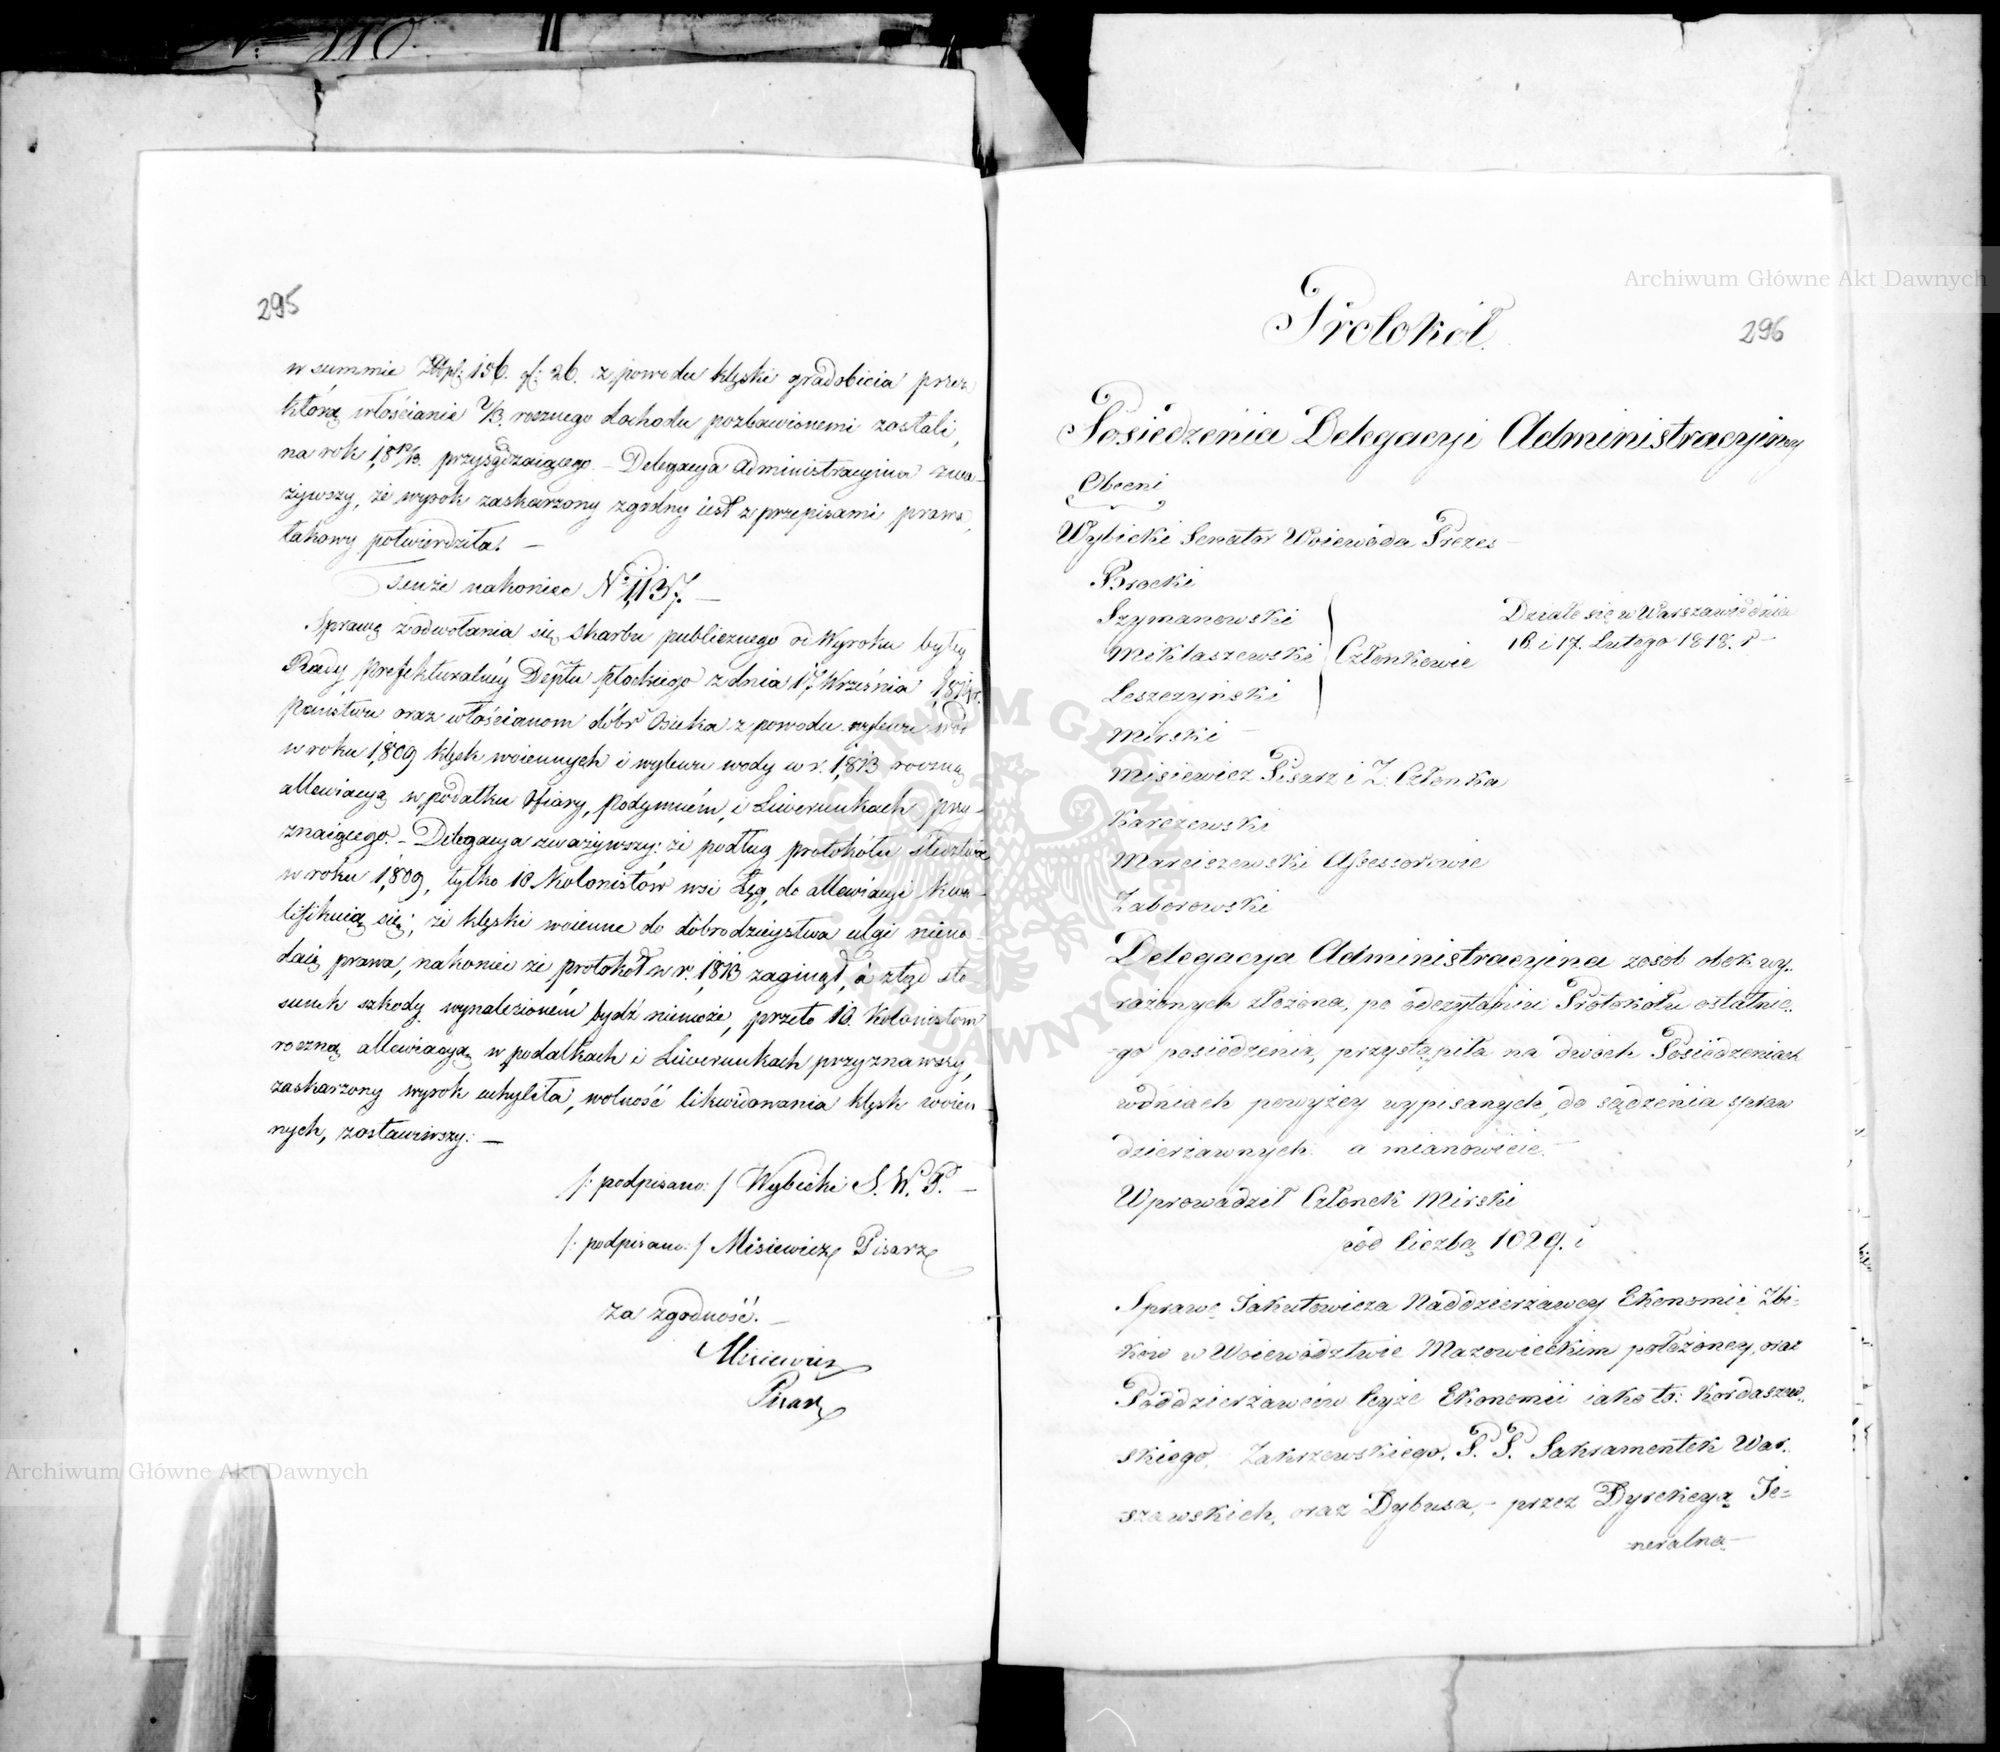 295
w summie Złłp: 156. gr: 26. z powodu klęski gradobicia przez
którą włościanie 2/3 rocznego dochodu pozbawionemi zostali,
na rok 18 12/13 przysądzaiącego. – Delegacya Administracyina zwa-
żywszy, że wyrok zaskarżony zgodny iest z przepisami prawa,
takowy potwierdziła. –
Tenże nakoniec No 1137. –
Sprawę z odwołania się Skarbu publicznego od Wyroku byłey
Rady Prefekturalnéy Dept̃u Płockiego z dnia 17 Września
państwu oraz włościanom dóbr Osieka z powodu wylewu wód
w roku 1809 klęsk woiennych i wylewu wody w r. 1813 roczną
allewiacyą w podatku Ofiary, Podymném, i Liwerunkach przy-
znaiącego. – Delegacya zważywszy: że podług protokółu śledztwa
w roku 1809, tylko 10 Kolonistów wsi Łęg, do allewiacyi kwa-
lifikuią się; że klęski woienne do dobrodzieystwa ulgi nieno-
daią prawa, nakoniec że protokół w r. 1813 zaginął, a ztąd sto-
sunek szkody wynalezioném bydź niemoże, przeto 10. Kolonistom
roczną allewiacyą w podatkach i Liwerunkach przyznawszy,
zaskarżony wyrok uchyliła, wolność likwidowania klęsk woien-
nych, zostawiwszy. –
/: podpisano: / Wybicki S. W. P. –
/: podpisano: / Misiewicz Pisarz
Za zgodność. –
Misiewicz
Pisarz
296
Protokół
Posiedzenia Delegacyi Administracyiney
Obecni
Wybicki Senator Woiewoda Prezes –
Brocki
Szymanowski
Miklaszewski
Członkowie
Leszczyński
Mirski –
Działo się w Warszawie dnia
16. i 17. Lutego 1818. r –
Misiewicz Pisarz i Z. Członka
Karczewski
Marciszewski Assessorowie
Zaborowski
Delegacya Administracyina z osób obok wy-
rażonych złożona, po odczytaniu Protokółu ostatnie-
-go posiedzenia, przystąpiła na dwóch Posiedzeniach
w dniach powyżey wypisanych, do sądzenia spraw
dzierżawnych a mianowicie. –
Wprowadził Członek Mirski
pod liczbą 1029. i
Sprawę Jakutowicza Naddzierżawcy Ekonomii Zbi-
-ków w Woiewództwie Mazowieckim położoney, oraz
Poddzierżawców teyże Ekonomii iako to: Kordaszew-
-skiego, Zakrzewskiego, P. P. Sakramentek War-
-szawskich, oraz Dybusa, – przez Dyrekcyą Je-
-neralną –
Archiwum Główne Akt Dawnych
Archiwum Główne Akt Dawnych
ARCHIWUM GŁÓWNE AKT DAWNYCH